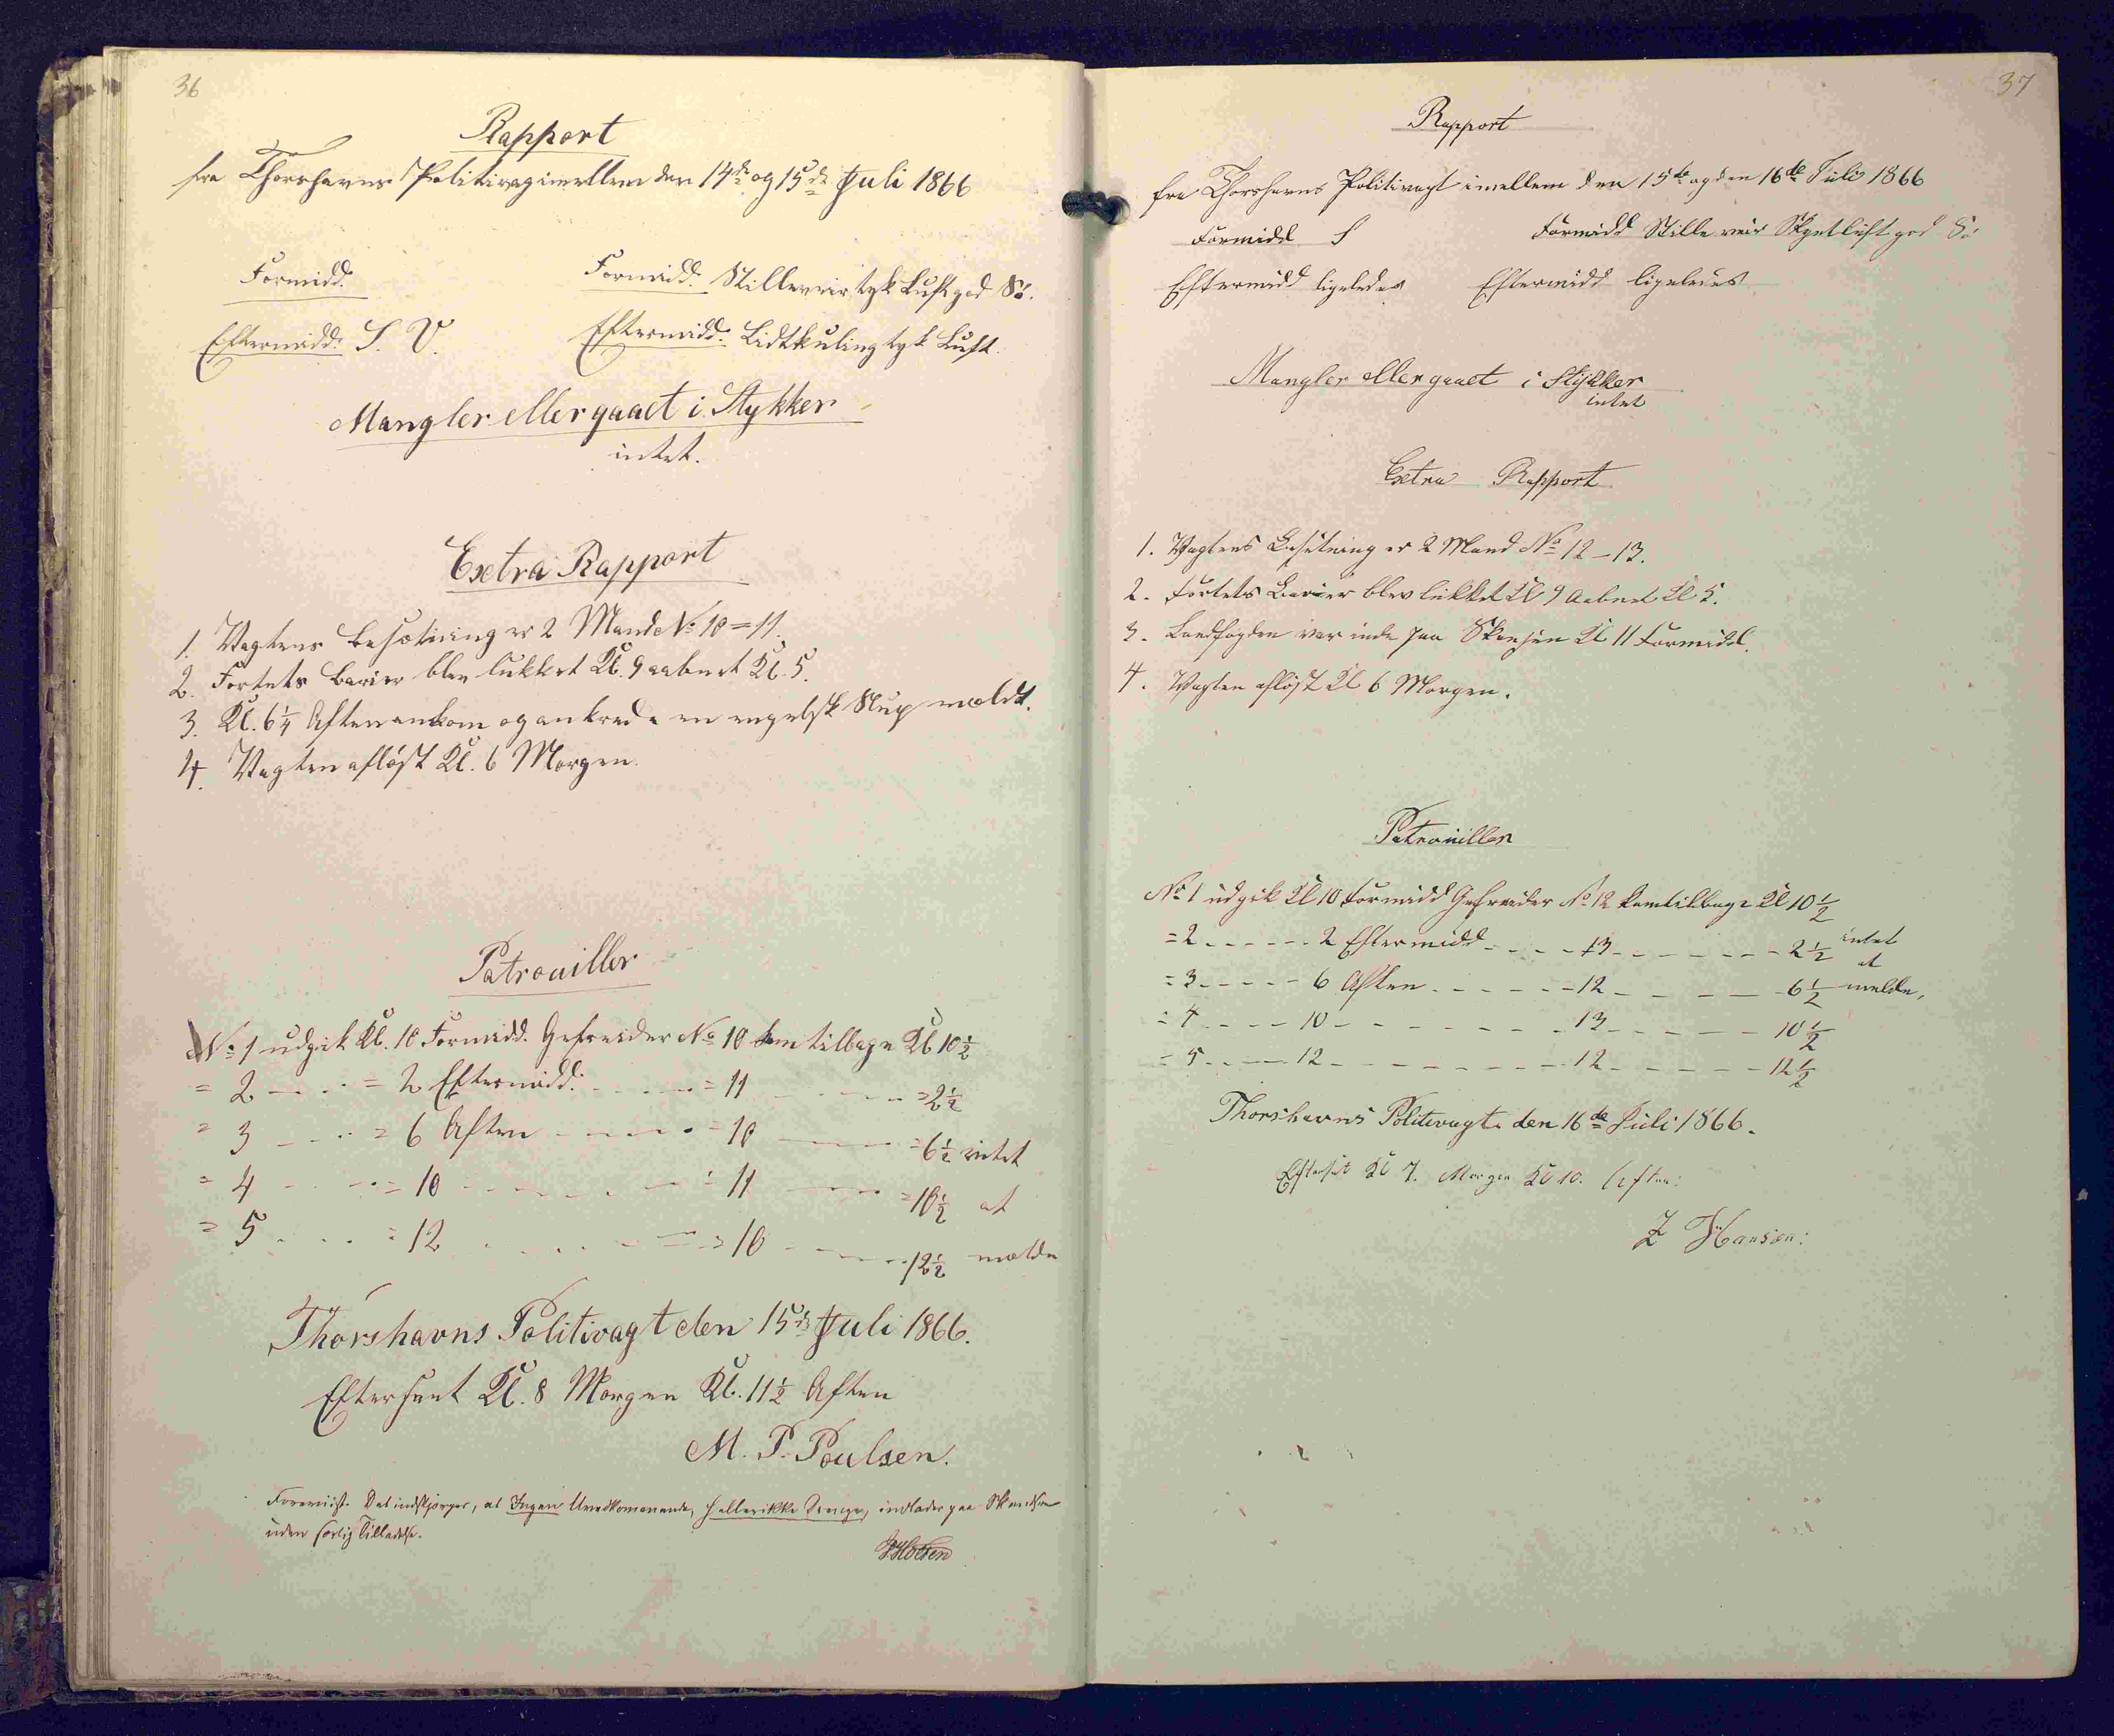 36
Rapport
fra Thorshavns Politivagt imellem den 14de og 15de Juli 1866
Formidd. Formidd. Stilleveir tyk Luft god Sö.
Eftermidd. S. V. Eftermidd. Lidt kuling tyk Luft.
Mangler eller gaaet i Stykker
intet.
Extra Rapport
1. Vagtens Besætning er 2 Mand No 10 = 11.
2. Fortets Barier blev lukket Kl. 9 aabnet Kl. 5.
3. Kl. 6¼ Aften ankom og ankrede en engelsk Slup meldt.
4. Vagten aflöst Kl. 6 Morgen.
Patrouiller
No 1 udgik Kl. 10 Formidd. Gefreider No 10 kom tilbage Kl 10½
= 2 - - - = 2 Eftermidd. - - - = 11 - - - = 2½
= 3 - - - = 6 Aften - - - = 10 - - - = 6½ intet
= 4 - - - = 10 - - - = 11 - - - = 10½ at
= 5 - - - = 12 - - - = 10 - - - 12½ melde
Thorshavns Politivagt den 15de Juli 1866.
Eftersent Kl. 8 Morgen Kl. 11½ Aften
M. P. Poulsen.
Foreviist. Det indskjærpes, at Ingen Uvedkommende, heller ikke Drenge, indlades paa Skandsen
uden særlig Tilladelse.
37
Rapport
fra Thorshavns Politivagt imellem den 15de og den 16de Juli 1866
Formidd S Formidd Stille veir Skyet luft god Sö
Eftermidd ligeledes Eftermidd ligeledes
Mangler eller gaaet i Stykker
intet
Extra Rapport
1. Vagtens Besetning er 2 Mand No 12 - 13.
2. Fortets Barier blev lukket Kl 9 Aabnet Kl 5.
3. Landfogden var inde paa Skansen Kl 11 Formidd.
4. Vagten aflöst Kl 6 Morgen.
Patrouiller
No 1 udgik Kl 10 Formidd Gefreider No 12 kom tilbage Kl 10½
= 2 - - - 2 Eftermidd - - - 13 - - - 2½ intet
at
= 3 - - - 6 Aften - - - 12 - - - 6½ melde,
= 4 - - - 10 - - - 13 - - - 10½
= 5 - - - 12 - - - 12 - - - 12½
Thorshavns Politivagt den 16de Juli 1866.
Kl 7. Morgen Kl 10. Aften:
Hansen: